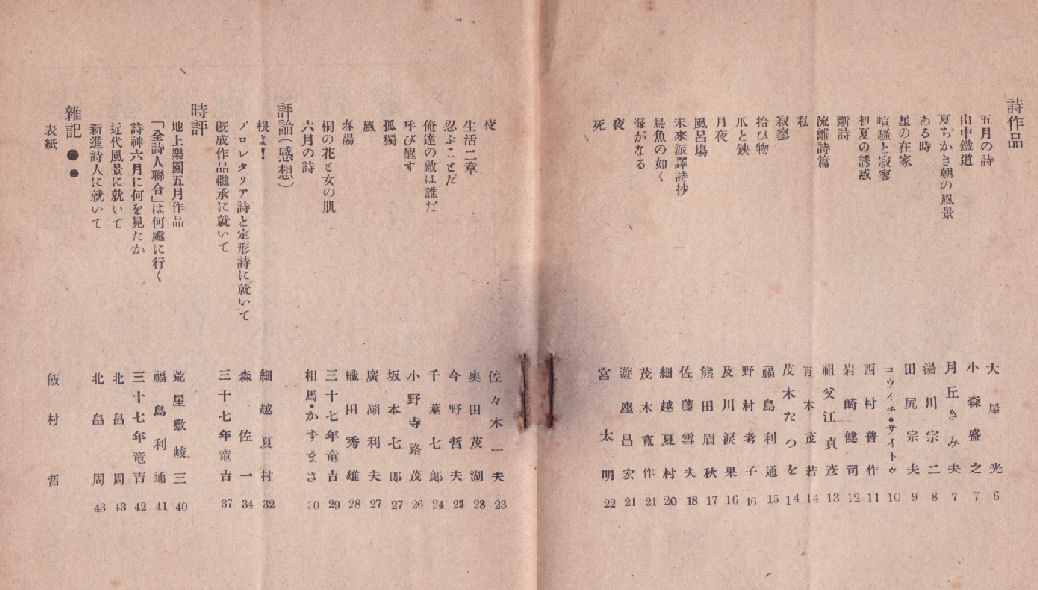 詩作品
五月の詩 大屋光 6
山中鐵道 小森盛之 7
夏ちかき朝の風景 月丘きみ夫 7
ある時 湯川宗二 8
星の在家 田尻宗夫 9
喧騷と寂寥 コウイチ・サイトウ 10
初夏の誘惑 西村普作 11
斷詩 岩崎健司 12
流離詩篇 祖父江貞彦 13
私 青木茂若 14
寂寥 茂木たつを 14
拾ひ物 福島利通 15
爪と鋏 野村孝子 16
月夜 及川淚果 16
風呂場 熊田眉秋 17
未來派譯詩抄 佐藤雪夫 18
鳥魚の如く 細越夏村 20
海がなる 茂木寬作 21
夜 遊座昌宏 21
死 宮太明 22
夜 佐々木一夫 23
生活二章 奥田茂湖 23
忍ぶことだ 今野哲夫 23
俺達の敵は誰だ 千葉七郎 24
呼び醒す 小野寺路茂 26
孤獨 坂本七郎 27
風 廣瀬利夫 27
春陽 織田秀雄 28
桐の花と女の肌 三十七年竜吉 29
六月の詩 相馬・かずまさ 30
評論(感想)
根よ! 細越夏村 32
プロレタリア詩と定形詩に就いて 森佐一 34
旣成作品繼承に就いて 三十七年竜吉 37
時評
地上樂園五月作品 荒屋敷峻三 40
「全詩人聯合」は何處に行く 福島利通 41
詩神六月に何を見たか 三十七年竜吉 42
近代風景に就いて 北畠周 43
新進詩人に就いて 北畠周 43
雜記●●
表紙 飯村哲